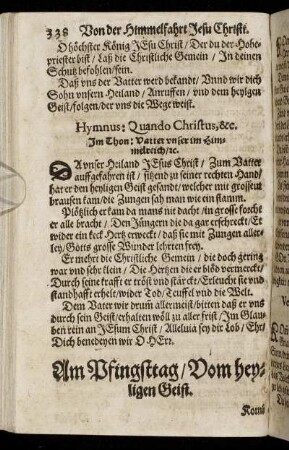 338 Von der Himmelfahrt Jesu Christi.
O höchster König JEsu Christ / Der du der Hohe-
priester bist / Laß die Christliche Gemein / In deinen
Schutz befohlen sein.
Daß vns der Vatter werd bekandt / Vnnd wir dich
Sohn vnsern Heiland / Anruffen / vnd dem heylgen
Geist / folgen / der vns die Wege weist.
Hymnus: Quando Christus, &c.
Im Thon: Vatter vnser im Him-
melreich / ꝛc.
DA vnser Heiland JEsus Christ / Zum Vatter
auffgefahren ist / sitzend zu seiner rechten Hand /
hat er den heyligen Geist gesandt / welcher mit grossem
brausen kam / die Zungen sah man wie ein flamm.
Plötzlich er kam da mans nit dacht / in grosse forcht
er alle bracht / Den Jüngern die da gar erschreckt / Er
wider ein keck Hertz erweckt / daß sie mit Zungen aller-
ley / Gotts grosse Wunder lehrten frey.
Er mehrt die Christliche Gemein / die doch gering
war vnd sehr klein / Die Hertzen die er blöd vermerckt /
Durch seine krafft er tröst vnd stärckt / Erleucht sie vnd
standhafft erhelt / wider Tod / Teuffel vnd die Welt.
Dem Vater wir drum̃ allermeist / bitten daß er vns
durch sein Geist / erhalten wöll zu aller frist / Im Glau-
ben rein an JEsum Christ / Alleluia sey dir Lob / Ehr /
Dich benedeyen wir O HErr.
Am Pfingsttag / Vom hey-
ligen Geist.
Kom̃